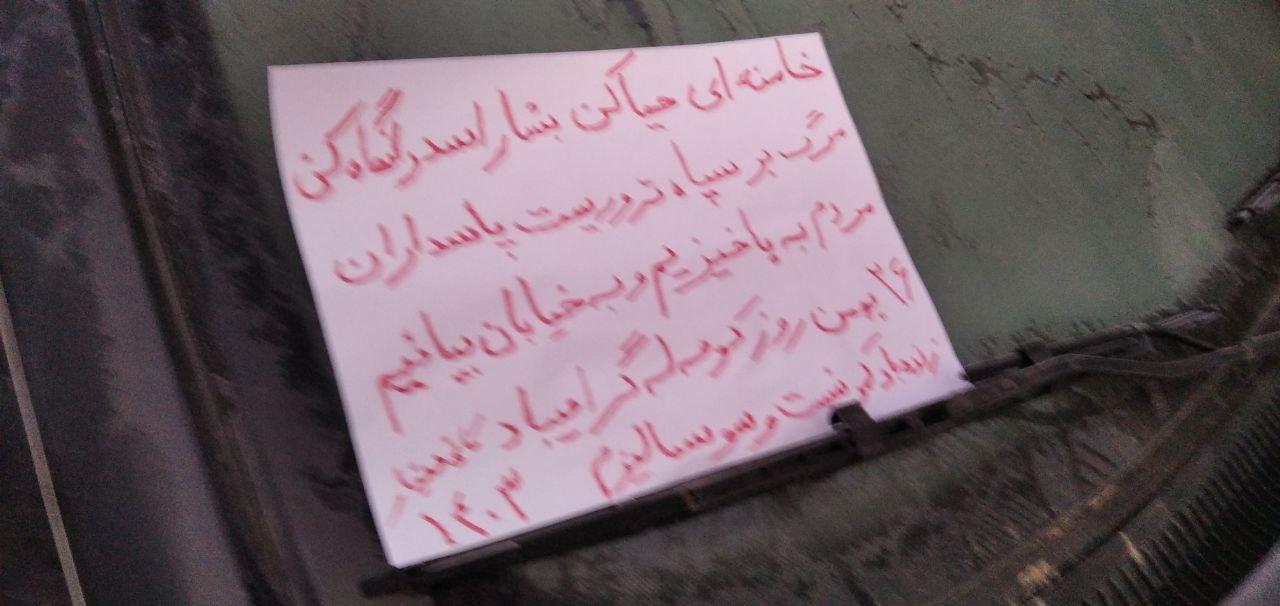 خامنه ای حیا کن بشار اسد رو نگاه کن
مرگ بر سپاه تروریست پاسداران
مردم به پا خیزیم و به خیابان بیائیم
۲۶ بهمن روز کومه له گرامیباد
زنده باد کمونیست و سوسیالیزم
۱۴۰۳